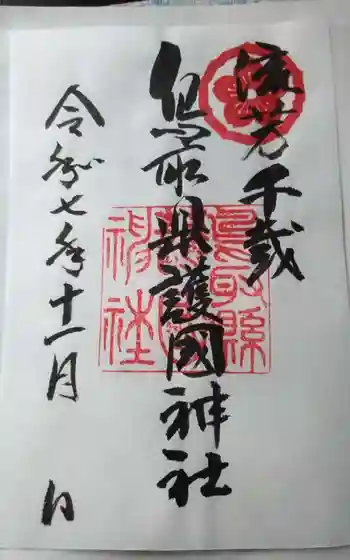 流芳千歳
鳥取県護國神社
鳥取縣護國神社
令和七年十一月 日